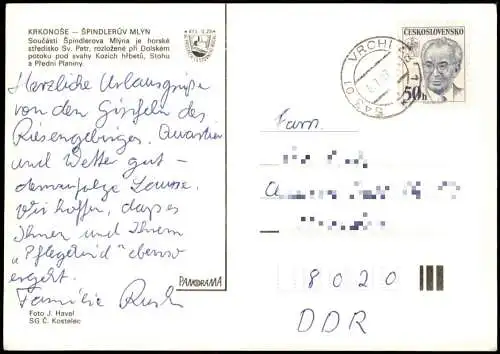 KRKONOŠE – ŠPINDLERŮV MLÝN
Součástí Špindlerova Mlýna je horské
středisko Sv. Petr, rozložené při Dolském
potoku pod svahy Kozích hřbetů, Stohu
a Přední Planiny.
Herzliche Urlaubsgrüße
von den Gipfeln des
Riesengebirges. Quartier
und Wetter gut –
demzufolge Laune.
Wir hoffen, dass es
Ihnen und Ihrem
„Pflegekind“ ebenso
ergeht.
Familie
Foto J. Havel
SG Č. Kostelec
PANORAMA
543 01 VRCHLABÍ 1
ČESKOSLOVENSKO
50h
Fam.
8020
DDR